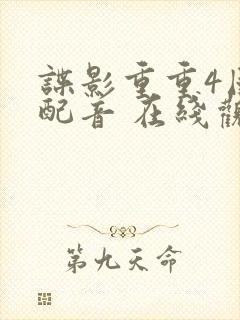 諜影重重4
配音 在綫觀
第九天命